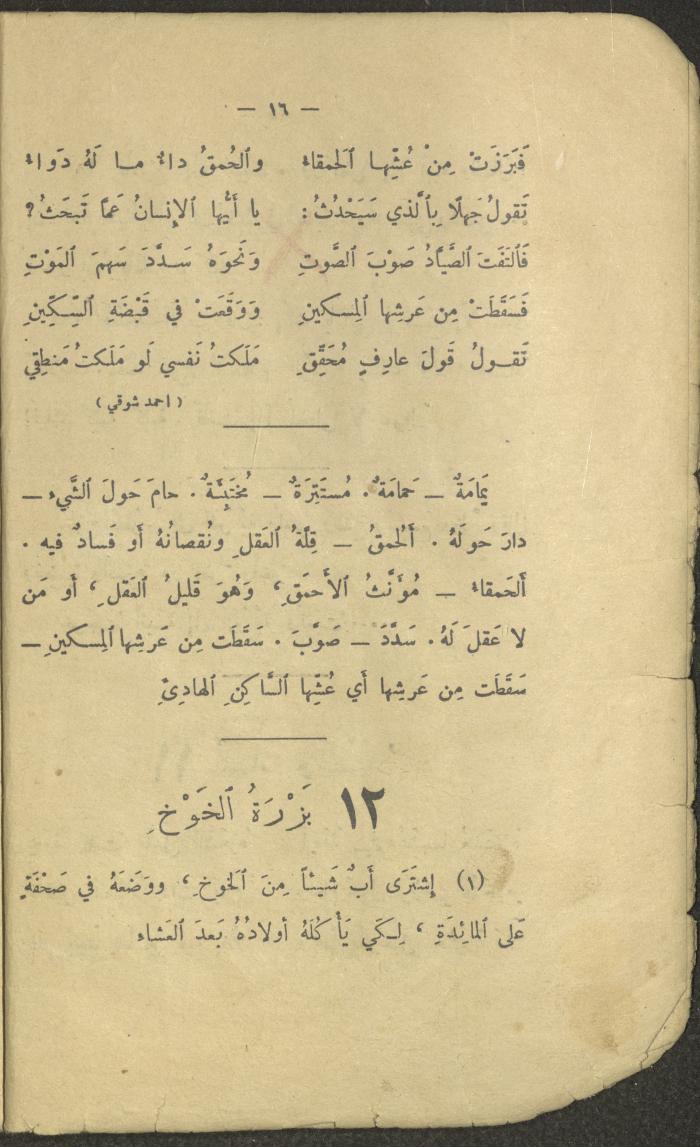 — ١٦ —
فَبَرَزَتْ مِنْ عُشِّهـا ٱلحَمقاءُ والحُمقُ داءٌ مـا لَهُ دَواءُ
تَقولُ جَهلًا بِٱلَّذي سَيَحْدُثُ : يا أَيُّها الإِنسانُ عَمَّا تَبحَثُ ؟
فَٱلتَفَتَ ٱلصَّيَّادُ صَوْبَ ٱلصَّوتِ وَنَحْوَهُ سَـدَّدَ سَهمَ المَوْتِ
فَسَقَطَتْ مِن عَرشِها المِسكينِ وَوَقَعَتْ في قَبْضَةِ السِّكِّينِ
تَقـولُ قَولَ عارِفٍ مُحَقِّقِ مَلَكتُ نَفسي لَو مَلَكتُ مَنطِقِي
( احمد شوقي )
يَمامَةٌ – حَمامَةٌ . مُستَتِرَةٌ – مُختَبِئَةٌ . حامَ حَولَ الشَّيءِ –
دارَ حَولَهُ . أَلحُمقُ – قِلَّةُ العَقلِ ونُقصانُهُ أَو فَسادٌ فيه .
أَلحَمقاءُ – مُؤَنَّثُ الأَحمَقِ ، وَهُوَ قَليلُ العَقلِ ، أَو مَن
لا عَقلَ لَهُ . سَدَّدَ – صَوَّبَ . سَقَطَت مِن عَرشِها المِسكينِ –
سَقَطَت مِن عَرشِها أَي عُشِّها ٱلسَّاكِنِ الهادِئِ
١٢ بَزْرَةُ الخَوْخِ
(١) إِشتَرَى أَبٌ شَيئاً مِنَ ٱلخوخِ ، ووَضَعَهُ في صَحْفَةٍ
عَلى المائِدَةِ ، لِـكَي يَأْكُلَهُ أولادُهُ بَعدَ العَشاءِ